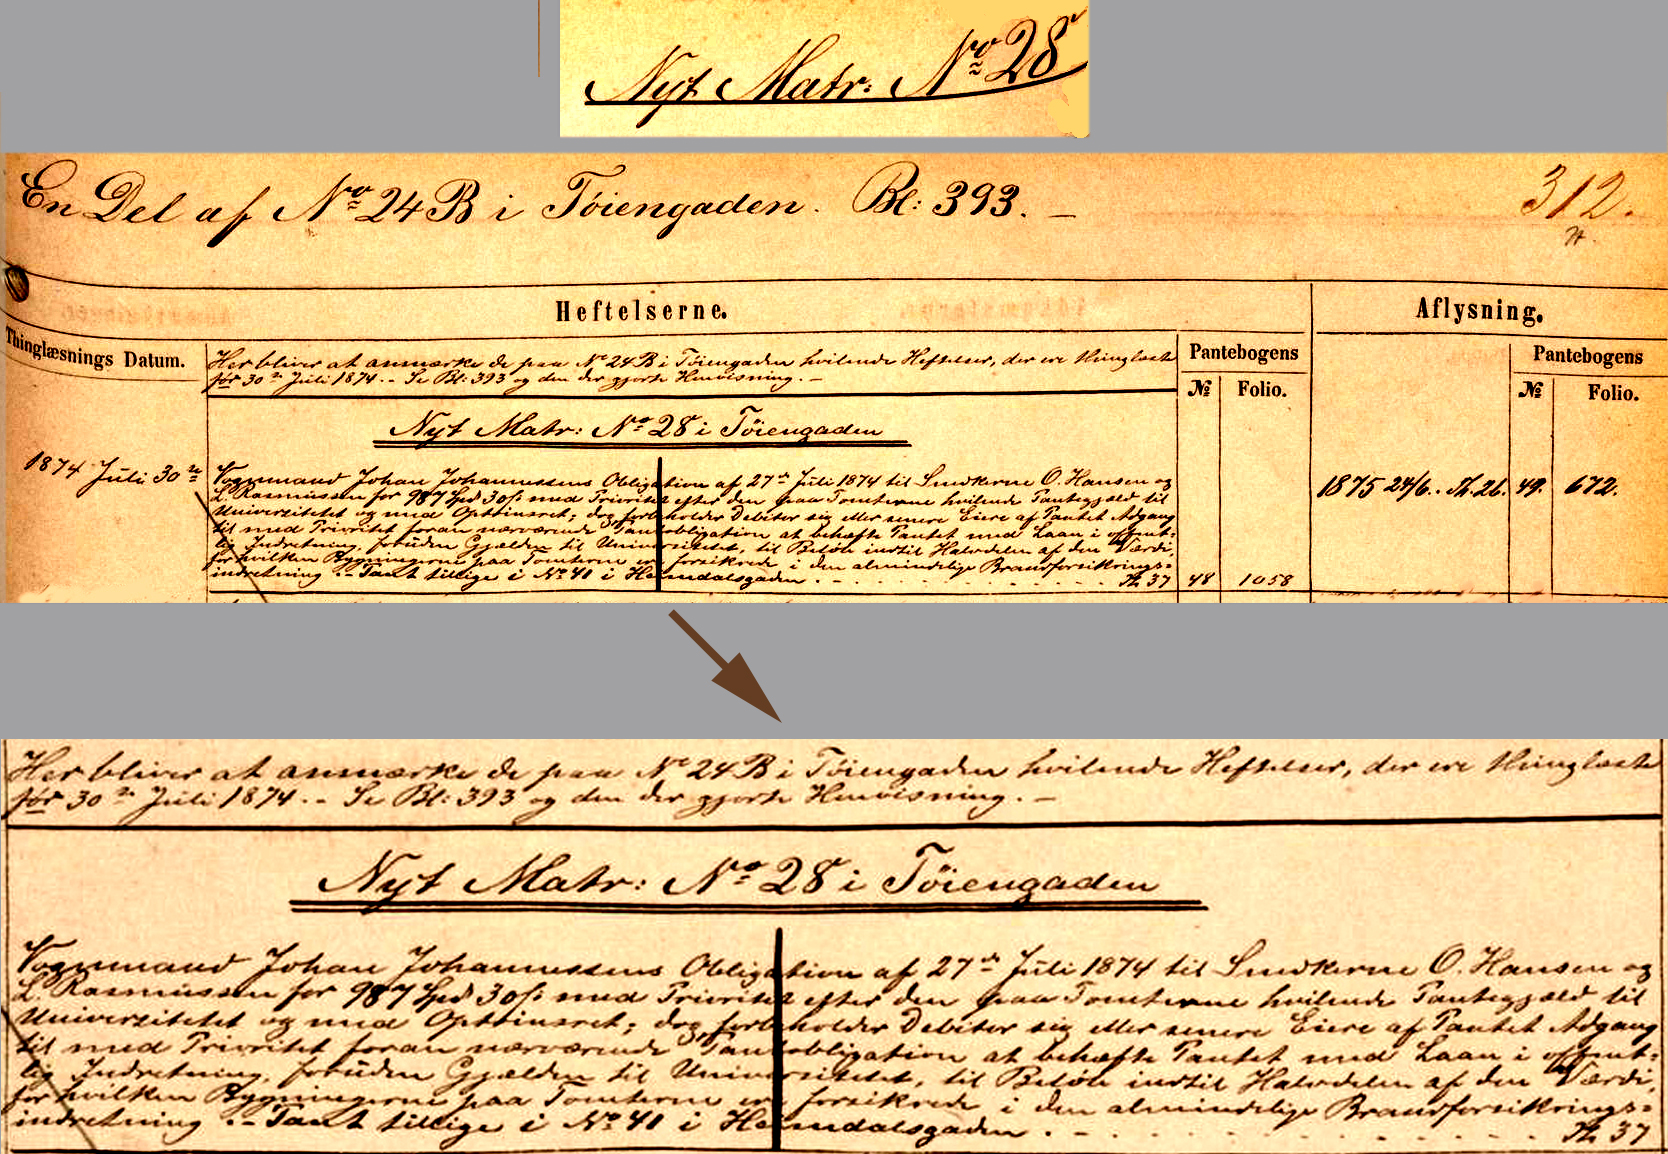 Nyt Matr: No 28
En Del af No 24 B i Töiengaden. Bl: 393. —
312.
Heftelserne.
Aflysning.
Thinglæsnings Datum.
Pantebogens
Pantebogens
№
Folio.
№
Folio.
Her bliver at anmærke de paa No 24 B i Töiengaden hvilende Heftelser, der ere thinglæste
før 30te Juli 1874. - Se Bl: 393 og den der gjorte Henvisning. —
Nyt Matr: No 28 i Töiengaden
1874 Juli 30te
Vognmand Johan Johannessens Obligation af 27de Juli 1874 til Smedkerne O. Hansen og
L. Rasmussen for 987 Spd 30 s: med Prioritet efter den paa Tomterne hvilende Pantegjæld til
Universitetet og med Optrinsret; dog forbeholder Debitor sig eller senere Eiere af Pantet Adgang
til med Prioritet foran nærværende Pantobligation at behæfte Pantet med Laan i offent-
lig Indretning, foruden Gjælden til Universitetet, til Beløb indtil Halvdelen af den Værdi,
for hvilken Bygningerne paa Tomterne ere forsikrede i den almindelige Brandforsikrings-
indretning. - Pant tillige i No 41 i Heimdalsgaden.
37
48
1058
1875 24/6.
26.
49.
672.
Her bliver at anmærke de paa No 24 B i Töiengaden hvilende Heftelser, der ere thinglæste
før 30te Juli 1874. - Se Bl: 393 og den der gjorte Henvisning. —
Nyt Matr: No 28 i Töiengaden
Vognmand Johan Johannessens Obligation af 27de Juli 1874 til Smedkerne O. Hansen og
L. Rasmussen for 987 Spd 30 s: med Prioritet efter den paa Tomterne hvilende Pantegjæld til
Universitetet og med Optrinsret; dog forbeholder Debitor sig eller senere Eiere af Pantet Adgang
til med Prioritet foran nærværende Pantobligation at behæfte Pantet med Laan i offent-
lig Indretning, foruden Gjælden til Universitetet, til Beløb indtil Halvdelen af den Værdi,
for hvilken Bygningerne paa Tomterne ere forsikrede i den almindelige Brandforsikrings-
indretning. - Pant tillige i No 41 i Heimdalsgaden.
37